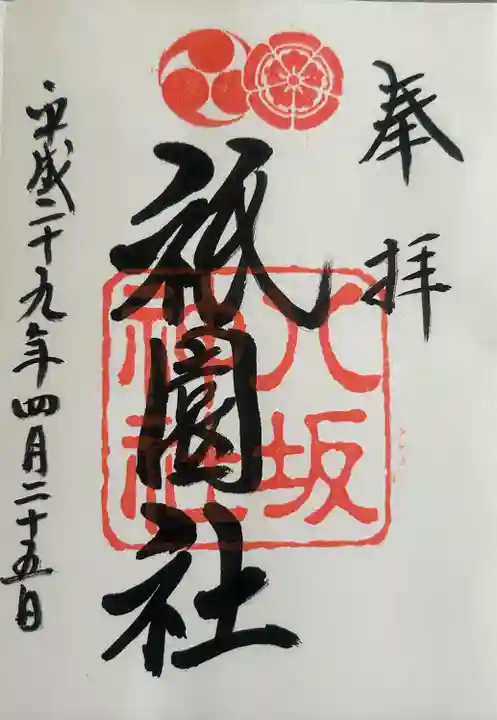 奉拝
祇園社
八坂
神社
平成二十九年四月二十五日